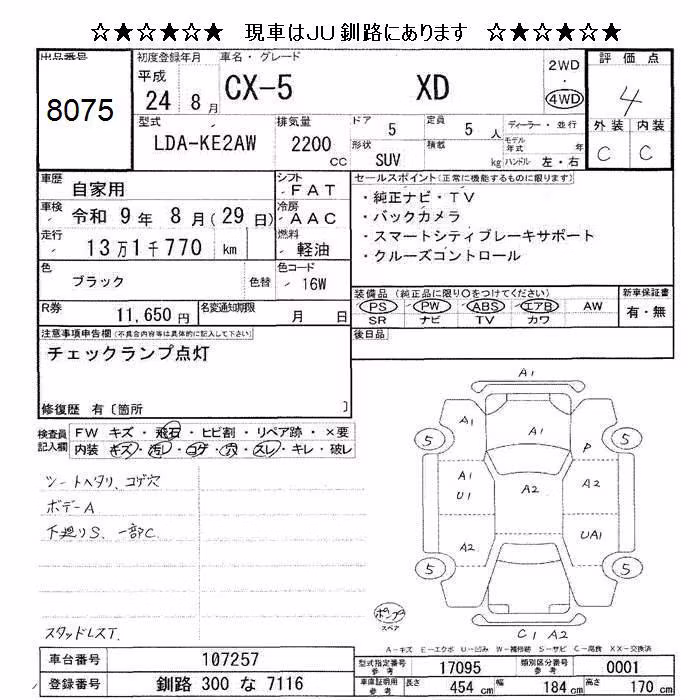 ☆★☆★☆★ 現車はＪＵ釧路にあります ☆★☆★☆★
出品番号
8075
初度登録年月
平成
24 8月
車名・グレード
CX-5 XD
2WD
・
4WD
評価点
4
外装 内装
C C
型式
LDA-KE2AW
排気量
2200 CC
ドア 5
定員 5 人
形状 SUV
積載 kg
ディーラー・並行
モデル年式 年
ハンドル 左・右
車歴 自家用
車検 令和 9年 8月(29日)
走行 13万1千770 km
色 ブラック 色替
シフト FAT
冷房 AAC
燃料 軽油
色コード 16W
R券 11,650円
名変通知期限 月 日
セールスポイント(正常に機能するものに限ります)
・純正ナビ・TV
・バックカメラ
・スマートシティブレーキサポート
・クルーズコントロール
装備品 (純正品に限り○をつけてください)
PS PW ABS エアB AW
SR ナビ TV カワ
新車保証書
有・無
後日品
注意事項申告欄(不具合内容等は具体的に記入して下さい)
チェックランプ点灯
修復歴 有〔箇所 〕
検査員記入欄
FW キズ・飛石・ヒビ割・リペア跡・×要
内装 キズ・汚レ・コゲ・穴・スレ・キレ・破レ
シートヘタリ、コゲ穴
ボデーA
下廻りS、一部C
スタッドレスT.
A1
A1
A1
5
5
P
A1
U1
A2
A2
A2
UA1
5
5
パンク
スペア
C1 A2
A-キズ E-エクボ U-凹み W-補修跡 S-サビ C-腐食 XX-交換済
車台番号 107257
登録番号 釧路 300 な 7116
型式指定番号 参考 17095
類別区分番号 参考 0001
車庫証明用 参考 長さ 454 cm 幅 184 cm 高さ 170 cm